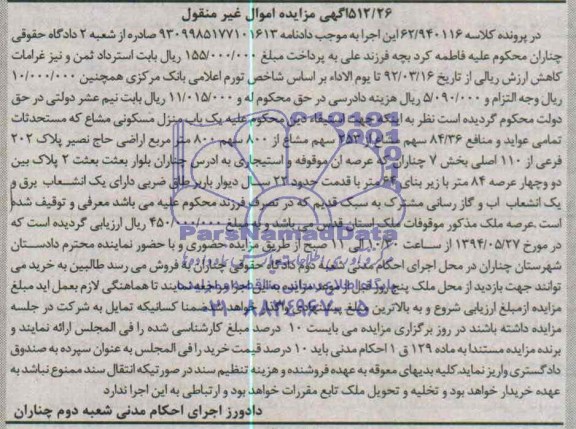 ۵۱۲/۲۶آگهی مزایده اموال غیر منقول
در پرونده کلاسه ۶۲/۹۴۰۱۱۶ این اجرا به موجب دادنامه ۹۳۰۹۹۸۵۱۷۷۱۰۱۶۱۳ صادره از شعبه ۲ دادگاه حقوقی
چناران محکوم علیه فاطمه کرد بچه فرزند علی به پرداخت مبلغ ۱۵۵/۰۰۰/۰۰۰ ریال بابت استرداد ثمن و نیز غرامات
کاهش ارزش ریالی از تاریخ ۹۲/۰۳/۱۶ تا یوم الاداء بر اساس شاخص تورم اعلامی بانک مرکزی همچنین ۱۰/۰۰۰/۰۰۰
ریال وجه التزام و ۵/۰۹۰/۰۰۰ ریال هزینه دادرسی در حق محکوم له و ۱۱/۰۱۵/۰۰۰ ریال بابت نیم عشر دولتی در حق
دولت محکوم گردیده است نظر به اینکه محکوم علیه یک باب منزل مسکونی مشاع که مستحدثات
تمامی عواید و منافع ۸۴/۳۶ سهم مشاع از ۲۵۳ سهم مشاع از ۸۰۰ سهم ۸۰۰ متر مربع اراضی حاج نصیر پلاک ۲۰۲
فرعی از ۱۱۰ اصلی بخش ۷ چناران که عرصه ان موقوفه و استیجاری به ادرس چناران بلوار بعثت بعثت ۲ پلاک بین
دو وچهار عرصه ۸۴ متر با زیر بنای متر با قدمت حدود ۲۲ سال دیوار باربر طاق ضربی دارای یک انشعاب برق و
یک انشعاب اب و گاز رسانی مشترک به سبک قدیم که در تصرف فرزند محکوم علیه می باشد معرفی و توقیف شده
است .عرصه ملک مذکور موقوفات ملک استان قدس می باشد و به مبلغ ۴۵۰/۰۰۰/۰۰۰ ریال ارزیابی گردیده است که
در مورخ ۱۳۹۴/۰۵/۲۷ از ساعت ۱۰/۳۰ الی ۱۱ صبح از طریق مزایده حضوری و با حضور نماینده محترم دادستان
شهرستان چناران در محل اجرای احکام مدنی شعبه دوم دادگاه حقوقی چناران به فروش می رسد طالبین به خرید می
توانند جهت بازدید از محل ملک پنج روز قبل از موعد مزایده به این اجرا مراجعه نمایند تا هماهنگی لازم بعمل اید مبلغ
مزایده ازمبلغ ارزیابی شروع و به بالاترین مبلغ پیشنهادی خواهد ضمنا کسانیکه تمایل به شرکت در جلسه
مزایده داشته باشند در روز برگزاری مزایده می بایست ۱۰ درصد مبلغ کارشناسی شده را فی المجلس ارائه نمایند و
برنده مزایده مستندا به ماده ۱۲۹ ق ا احکام مدنی باید ۱۰ درصد قیمت خرید را فی المجلس به عنوان سپرده به صندوق
دادگستری واریز نماید.کلیه بدیهای معوقه به عهده فروشنده و هزینه تنظیم سند در صورتیکه انتقال سند ممنوع نباشد به
عهده خریدار خواهد بود و تخلیه و تحویل ملک تابع مقررات خواهد بود و ارتباطی به این اجرا ندارد
دادورز اجرای احکام مدنی شعبه دوم چناران
ParsNamadData